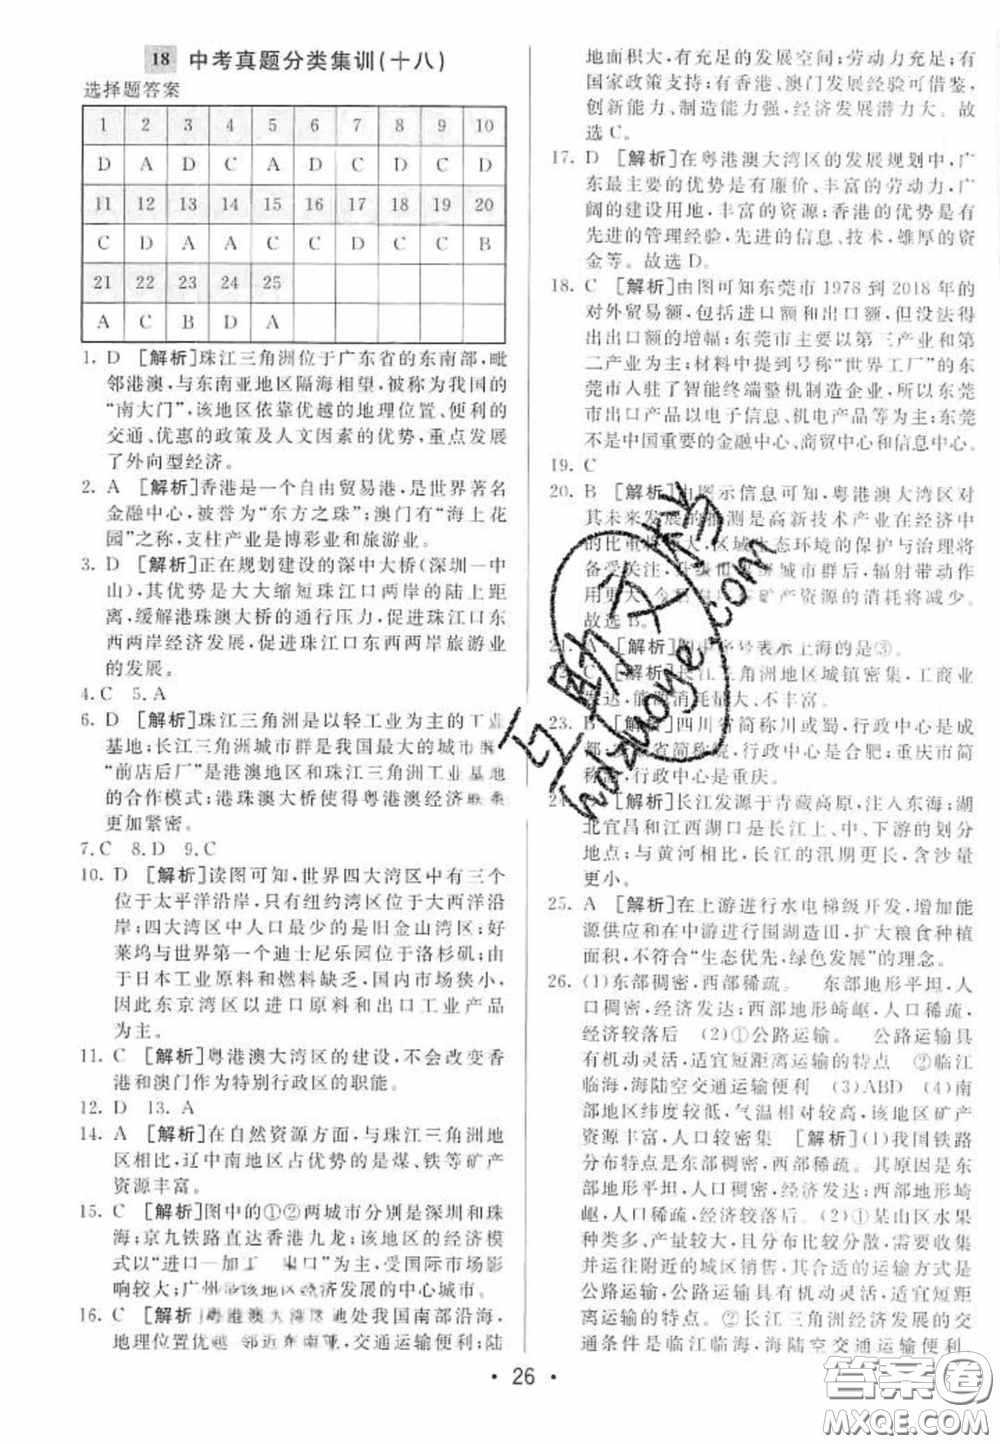 18 中考真题分类集训(十八)
选择题答案
1 2 3 4 5 6 7 8 9 10
D A D C A D C D C D
11 12 13 14 15 16 17 18 19 20
C D A A C C D C C B
21 22 23 24 25
A C B D A
1. D [解析]珠江三角洲位于广东省的东南部,毗
邻港澳,与东南亚地区隔海相望,被称为我国的
“南大门”,该地区依靠优越的地理位置、便利的
交通、优惠的政策及人文因素的优势,重点发展
了外向型经济。
2. A [解析]香港是一个自由贸易港,是世界著名
金融中心,被誉为“东方之珠”;澳门有“海上花
园”之称,支柱产业是博彩业和旅游业。
3. D [解析]正在规划建设的深中大桥(深圳—中
山),其优势是大大缩短珠江口两岸的陆上距
离,缓解港珠澳大桥的通行压力,促进珠江口东
西两岸经济发展,促进珠江口东西两岸旅游业
的发展。
4. C 5. A
6. D [解析]珠江三角洲是以轻工业为主的工业
基地;长江三角洲城市群是我国最大的城市群;
“前店后厂”是港澳地区和珠江三角洲工业基地
的合作模式;港珠澳大桥使得粤港澳经济联系
更加紧密。
7. C 8. D 9. C
10. D [解析]读图可知,世界四大湾区中有三个
位于太平洋沿岸,只有纽约湾区位于大西洋沿
岸;四大湾区中人口最少的是旧金山湾区;好
莱坞与世界第一个迪士尼乐园位于洛杉矶;由
于日本工业原料和燃料缺乏,国内市场狭小,
因此东京湾区以进口原料和出口工业产品
为主。
11. C [解析]粤港澳大湾区的建设,不会改变香
港和澳门作为特别行政区的职能。
12. D 13. A
14. A [解析]在自然资源方面,与珠江三角洲地
区相比,辽中南地区占优势的是煤、铁等矿产
资源丰富。
15. C [解析]图中的①②两城市分别是深圳和珠
海;京九铁路直达香港九龙;该地区的经济模
式以“进口—加工 出口”为主,受国际市场影
响较大;广州是该地区经济发展的中心城市。
16. C [解析]粤港澳大湾区地处我国南部沿海,
地理位置优越 邻近东南亚,交通运输便利;陆
地面积大,有充足的发展空间;劳动力充足;有
国家政策支持;有香港、澳门发展经验可借鉴,
创新能力、制造能力强,经济发展潜力大。故
选C。
17. D [解析]在粤港澳大湾区的发展规划中,广
东最主要的优势是有廉价、丰富的劳动力,广
阔的建设用地,丰富的资源;香港的优势是有
先进的管理经验,先进的信息、技术,雄厚的资
金等。故选D。
18. C [解析]由图可知东莞市1978到2018年的
对外贸易额,包括进口额和出口额,但没法得
出出口额的增幅;东莞市主要以第三产业和第
二产业为主;材料中提到号称“世界工厂”的东
莞市人驻了智能终端整机制造企业,所以东莞
市出口产品以电子信息、机电产品等为主;东莞
不是中国重要的金融中心、商贸中心和信息中心。
19. C
20. B [解析]由图示信息可知,粤港澳大湾区对
其未来发展的推测是高新技术产业在经济中
的比重 大,区域生态环境的保护与治理将
备受关注, 城市群,辐射带动作
用更大, 矿产资源的消耗将减少。
故选B。
21. A [解析]图中序号表示上海的是③。
22. C [解析]长江三角洲地区城镇密集,工商业
发达,能源消耗量大、不丰富。
23. B [解析]四川省简称川或蜀,行政中心是成
都; 省简称皖,行政中心是合肥;重庆市简
称 ,行政中心是重庆。
24. [解析]长江发源于青藏高原,注入东海;湖
北宜昌和江西湖口是长江上、中、下游的划分
地点;与黄河相比,长江的汛期更长,含沙量
更小。
25. A [解析]在上游进行水电梯级开发,增加能
源供应和在中游进行围湖造田,扩大粮食种植
面积,不符合“生态优先,绿色发展”的理念。
26. (1)东部稠密,西部稀疏。 东部地形平坦,人
口稠密,经济发达;西部地形崎岖,人口稀疏,
经济较落后 (2)①公路运输。 公路运输具
有机动灵活,适宜短距离运输的特点 ②临江
临海,海陆空交通运输便利 (3)ABD (4)南
部地区纬度较低,气温相对较高,该地区矿产
资源丰富,人口较密集 [解析](1)我国铁路
分布特点是东部稠密,西部稀疏。其原因是东
部地形平坦,人口稠密,经济发达;西部地形崎
岖,人口稀疏,经济较落后。(2)①某山区水果
种类多、产量较大,且大多数比较分散,需要收集
并运往附近的城区销售,其合适的运输方式是
公路运输,公路运输具有机动灵活,适宜短距
离运输的特点。②长江三角洲经济发展的交
通条件是临江临海,海陆空交通运输便利。
26
互助文档
hdzuoye.com
答案圈
MXQE.COM